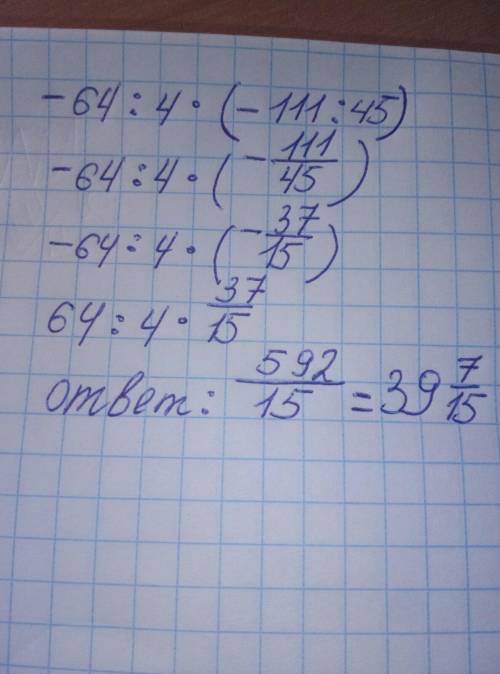 -64:4·(-111:45)
-64:4·(-111/45)
-64:4·(-37/15)
64:4·37/15
ответ: 592/15=39 7/15